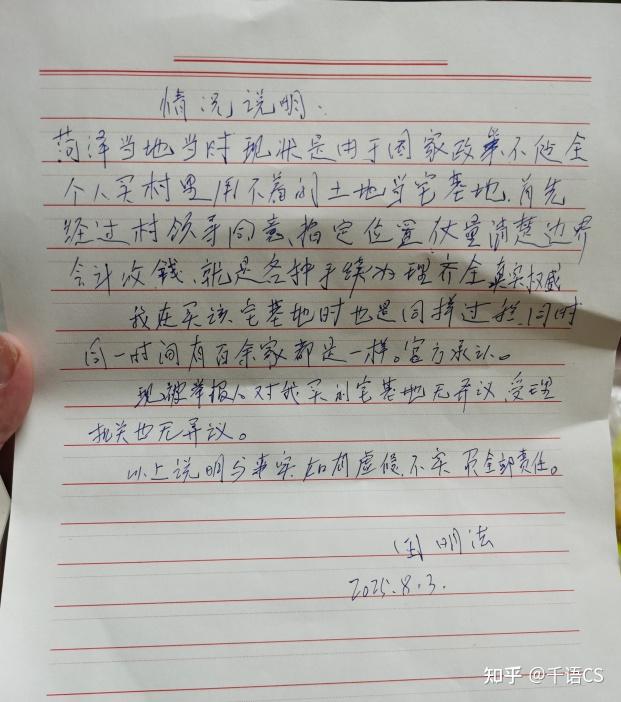 情况说明.
菏泽当地当时现状是由于国家政策不健全
个人买村里用不着的土地当宅基地.首先
经过村领导同意、指定位置仗量清楚边界
会计收钱、就是各种手续办理齐全真实权威
我在买该宅基地时也是同样过程.同时
同一时间有百余家都是一样。官方承认。
现被举报人对我买的宅基地无异议、受理
机关也无异议。
以上说明与事实如有虚假、不实 负全部责任。
明法
2025.8.3.
知乎 @千语CS